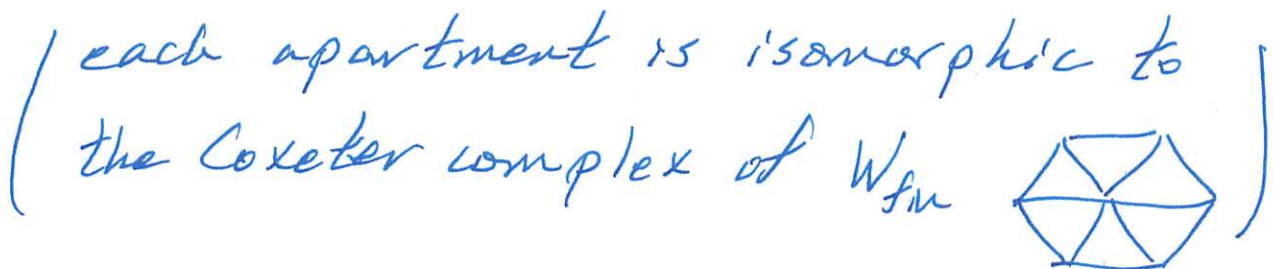 (each apartment is isomorphic to
the Coxeter complex of W_fin)